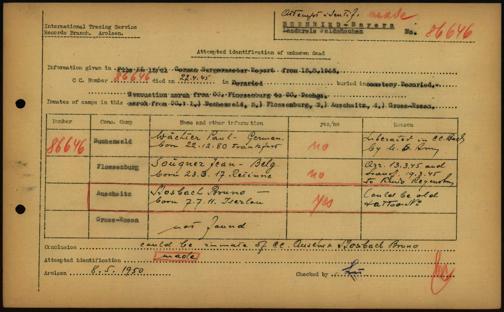 International Tracing Service
Records Branch. Arolsen.
Attempt identif. made
No. 86646
Attempted identification of unknown dead
Information given in German Burgermaster Report from 18.8.1948.
C.C. Number 86646 died on 22.4.45 in buried in cemetery
Evacuation march from CC. Flossenburg to CC. Dachau.
Inmates of camps in this march from CC.: 1.) Buchenwald, 2.) Flossenburg, 3.) Auschwitz, 4.) Gross-Rosen.
Number Conc. Camp Name and other information yes/no Reason
86646 Buchenwald Wächter Paul - German. born 22.12.80 Frankfurt no Liberated in CC. by U.S. Army
Flossenburg Sougnez Jean - Belg born 23.8.17 no 13.3.45 and 19.3.45
Auschwitz Stosbach Bruno — born 7.7.11 Iserlon yes Could be old tattoo No
Gross-Rosen not found
Conclusion could be inmate of CC. Stosbach Bruno
Attempted identification made
Arolsen 8.5.1950 Checked by